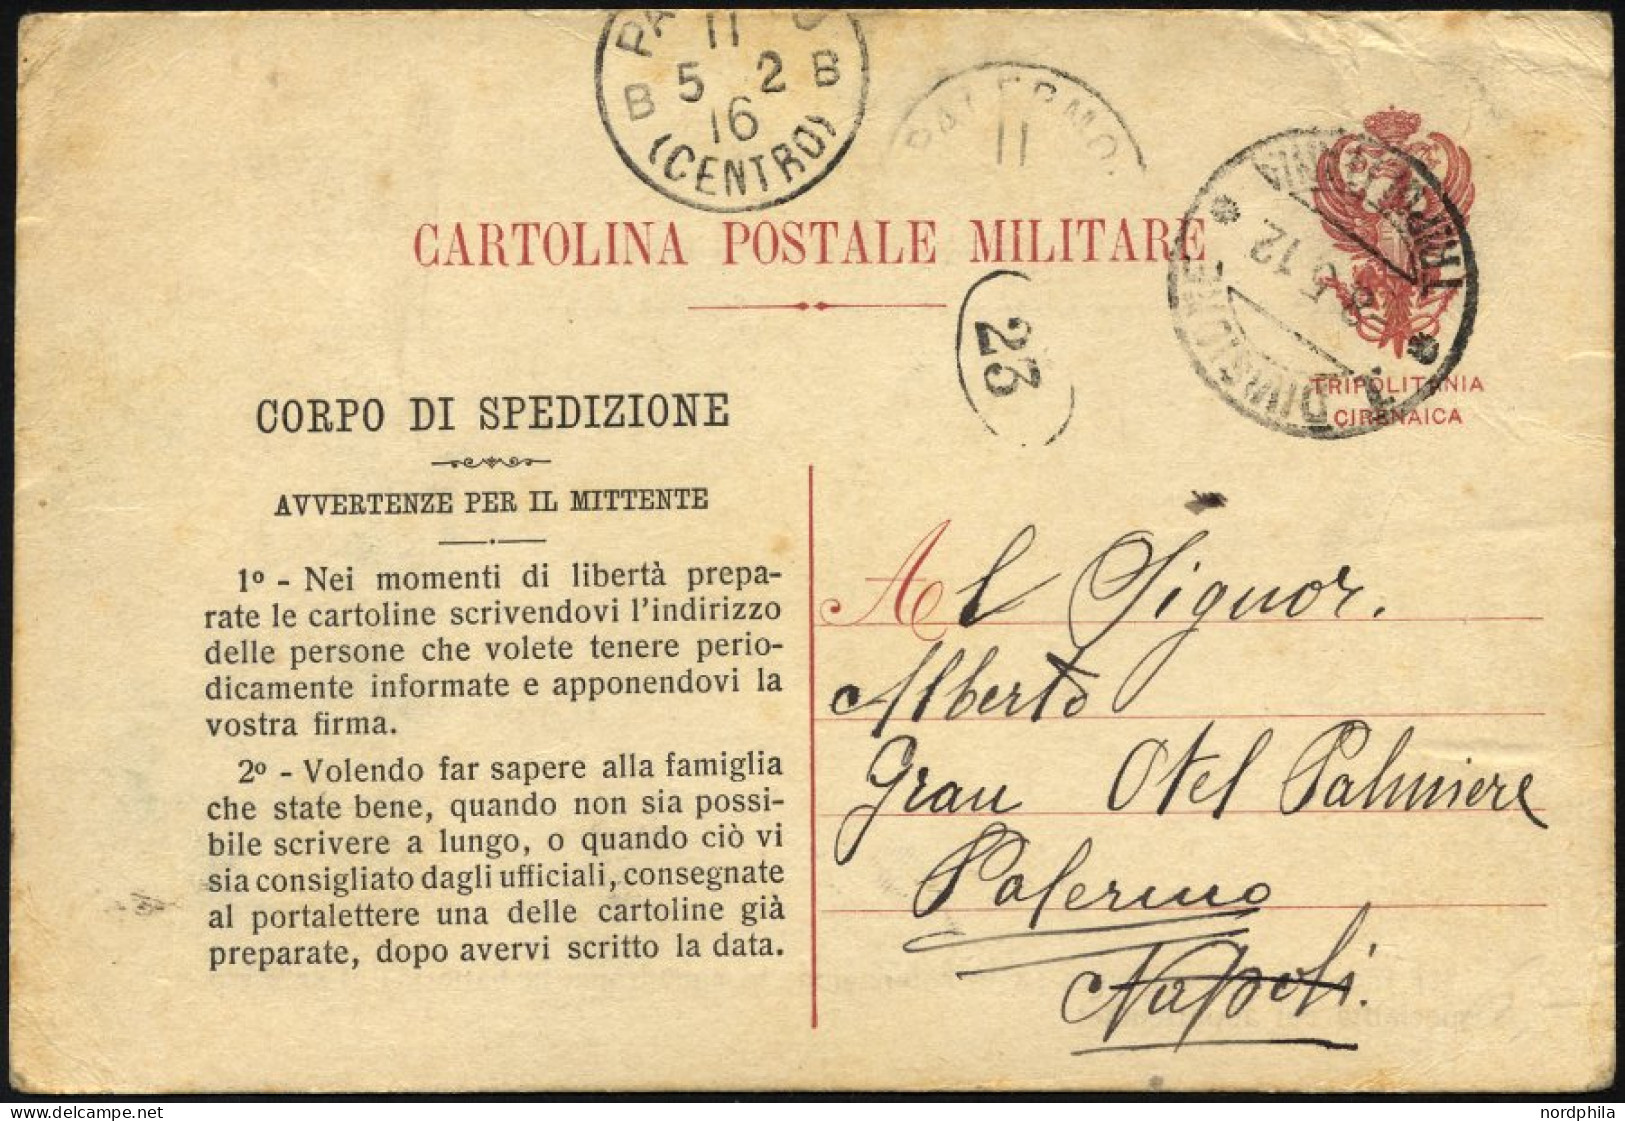 11
5 2
B B
16
(CENTRO)
PALERMO
11
CARTOLINA POSTALE MILITARE
23
8 5 12
TRIPOLITANIA
CIRENAICA
CORPO DI SPEDIZIONE
AVVERTENZE PER IL MITTENTE
1º - Nei momenti di libertà prepa-
rate le cartoline scrivendovi l'indirizzo
delle persone che volete tenere perio-
dicamente informate e apponendovi la
vostra firma.
2º - Volendo far sapere alla famiglia
che state bene, quando non sia possi-
bile scrivere a lungo, o quando ciò vi
sia consigliato dagli ufficiali, consegnate
al portalettere una delle cartoline già
preparate, dopo avervi scritto la data.
Al Signor.
Alberto
Gran Otel Palmiere
Palermo
Napoli.
nordphila.com